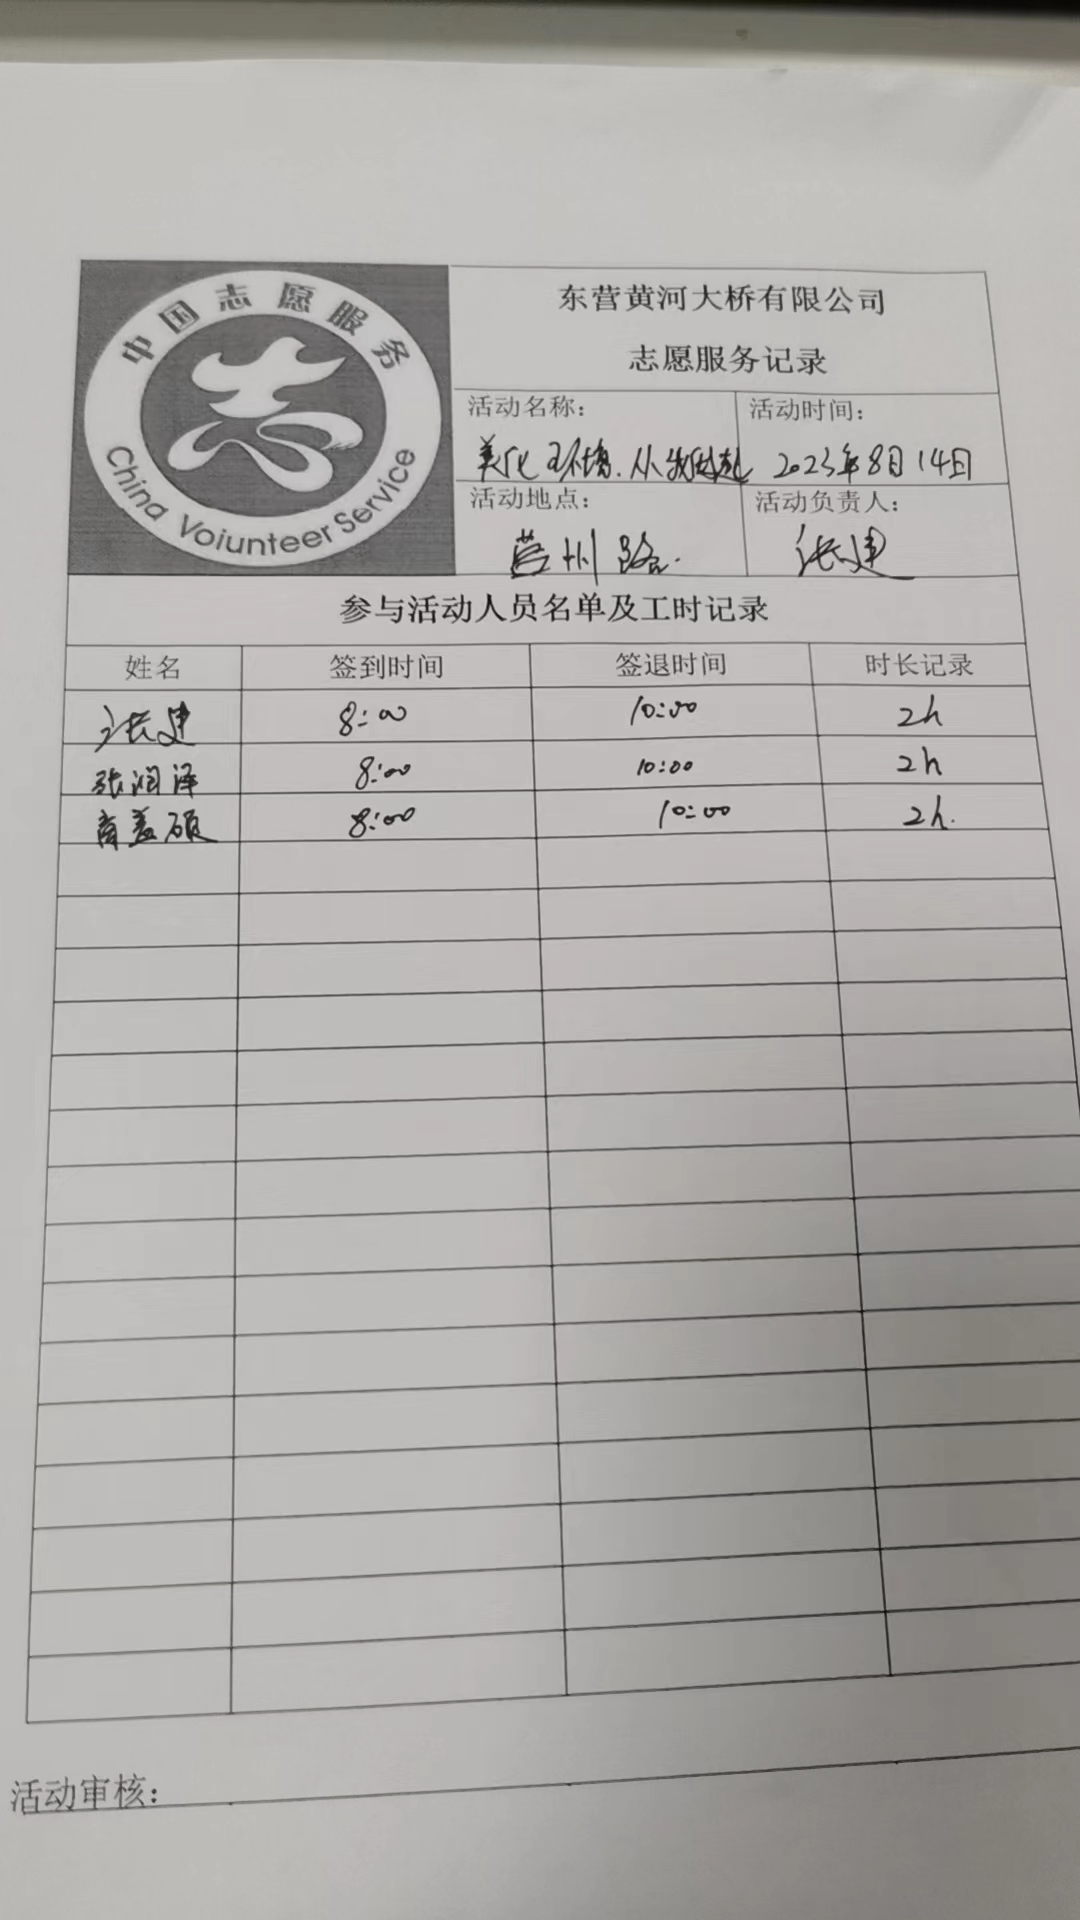 中国志愿服务
China Voiunteer Service
东营黄河大桥有限公司
志愿服务记录
活动名称：
活动时间：
美化环境.从我做起
2023年8月14日
活动地点：
活动负责人：
营州路.
张建
参与活动人员名单及工时记录
姓名 签到时间 签退时间 时长记录
张建 8:00 10:00 2h
张润泽 8:00 10:00 2h
8:00 10:00 2h.
活动审核：